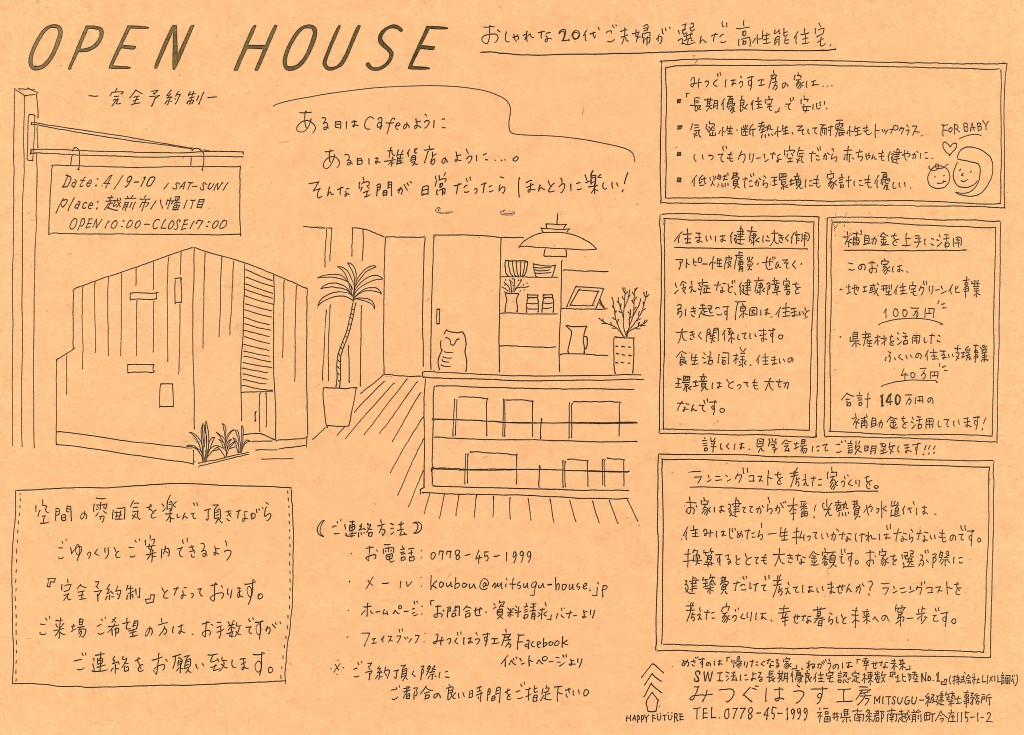 OPEN HOUSE
おしゃれな20代ご夫婦が選んだ高性能住宅.
-完全予約制-
Date:4/9-10 /SAT-SUN/
place:越前市八幡1丁目
OPEN10:00-CLOSE17:00
ある日はCafeのように
ある日は雑貨店のように...。
そんな空間が日常だったらほんとうに楽しい!
みつぐはうす工房の家は...
▪「長期優良住宅」で安心.
▪気密性・断熱性、そして耐震性もトップクラス.
▪いつでもクリーンな空気だから赤ちゃんも健やかに.
▪低燃費だから環境にも家計にも優しい.
FOR BABY
住まいは健康に大きく作用
アトピー性皮膚炎・ぜんそく・
冷え症など、健康障害を
引き起こす原因は、住まいと
大きく関係しています。
食生活同様、住まいの
環境はとっても大切
なんです。
補助金を上手に活用
このお家は、
・地域型住宅グリーン化事業
100万円
・県産材を活用した
ふくいの住まい支援事業
40万円
合計 140万円の
補助金を活用しています!
詳しくは、見学会場にてご説明致します!!!
ランニングコストを考えた家づくりを。
お家は建ててからが本番!光熱費や水道代は、
住みはじめたら一生払っていかなければならないものです。
換算するととても大きな金額です。お家を選ぶ際に
建築費だけで考えてはいませんか?ランニングコストを
考えた家づくりは、幸せな暮らしと未来への第一歩です。
空間の雰囲気を楽しんで頂きながら
ごゆっくりとご案内できるよう
『完全予約制』となっております。
ご来場ご希望の方は、お手数ですが
ご連絡をお願い致します。
《ご連絡方法》
・お電話:0778-45-1999
・メール:koubou@mitsugu-house.jp
・ホームページ:「お問合せ・資料請求」バナーより
・フェイスブック:みつぐはうす工房Facebook
イベントページより
※ご予約頂く際に
ご都合の良い時間をご指定下さい。
HAPPY FUTURE
めざすのは「帰りたくなる家」、ねがうのは「幸せな未来」
SW工法による長期優良住宅認定棟数『北陸No.1』(株式会社LIXIL調べ)
みつぐはうす工房 MITSUGU一級建築士事務所
TEL.0778-45-1999 福井県南条郡南越前町今庄115-1-2